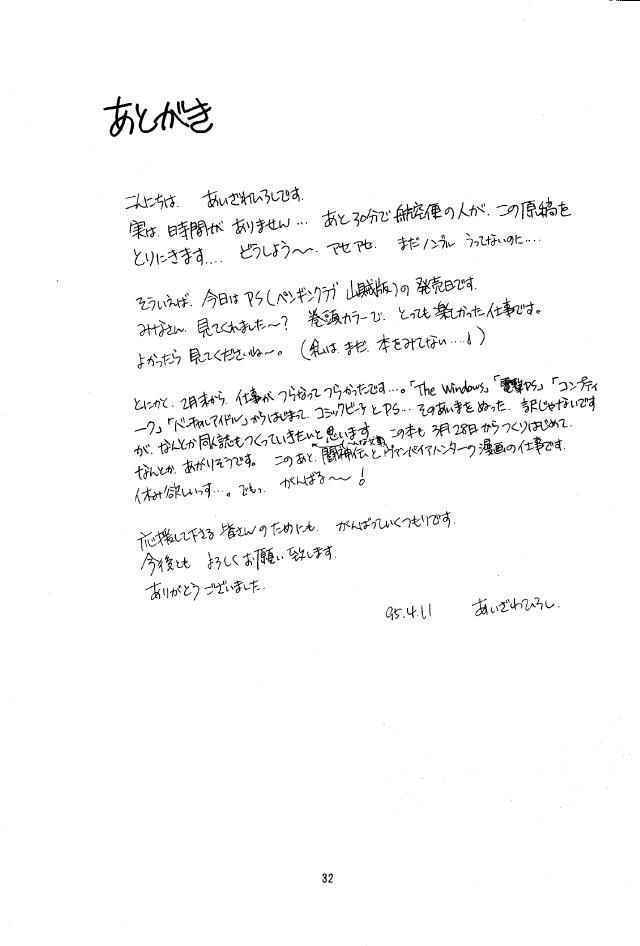 あとがき
こんにちは あいざわひろしです。
実は時間がありません… あと30分で航空便の人が、この原稿を
とりにきます…. どうしよう〜、アセアセ、まだノンブルうってないのに….
そういえば、今日はPS(ペンギンクラブ山賊版)の発売日です。
みなさん、見てくれました〜? 巻頭カラーで、とっても楽しかった仕事です。
よかったら見てくださいね〜。(私は、まだ、本をみてない….!)
とにかく、2月末から、仕事がつらなってつらかったです…。「The Windows」「電撃PS」「コンプティ
ーク」「バーチャルアイドル」からはじまって、コミックピー子とPS… そのあいまをぬった、訳じゃないです
が、なんとか同人誌もつくっていきたいと思います。この本も3月28日からつくりはじめて、
なんとか、あがりそうです。このあと、闘神伝とヴァンパイアハンターの漫画の仕事です。
休み欲しいっす…。でもっ、がんばる〜!
応援して下さる皆さんのためにも、がんばっていくつもりです。
今後とも よろしくお願い致します。
ありがとうございました。
95.4.11 あいざわひろし.
32